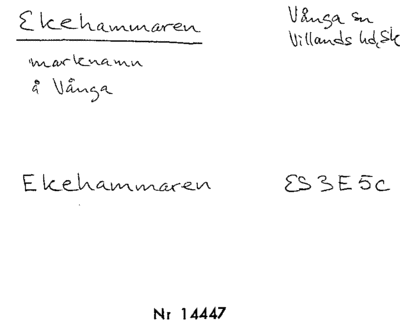 Ekehammaren
marknamn
å Vånga
Vånga sn
Villands hd, Sk
Ekehammaren
ES 3 E 5 c
Nr 14447